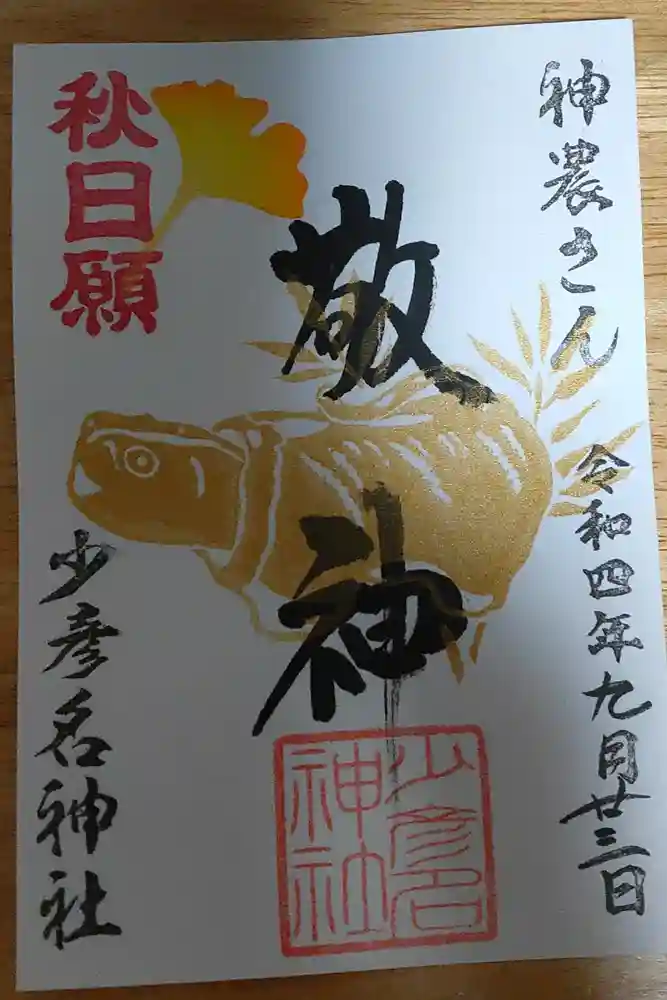 神農さん
令和四年九月廿三日
敬神
秋日願
少彦名神社
少彦名
神社